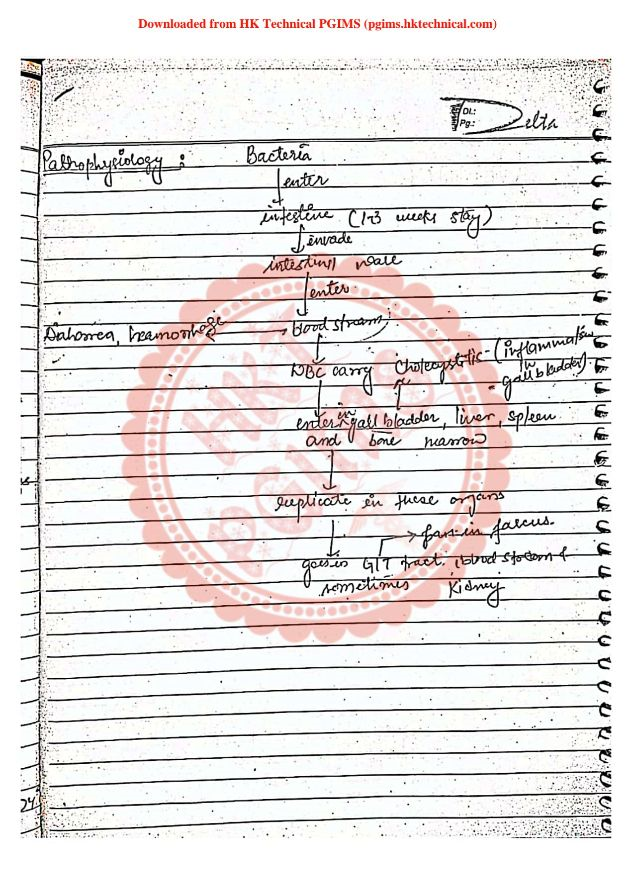 Downloaded from HK Technical PGIMS (pgims.hktechnical.com)
Dt.:
Pg.:
Delta
Pathophysiology : Bacteria
enter
intestine (1-3 weeks stay)
invade
intestinal wall
enter
Diahorrea, heamorrhage blood stream
WBC carry Cholecystitic - (inflammation
in
gall bladder).
enter in gall bladder, liver, spleen
and bone marrow
replicate in these organs
pass in faeces.
goes in GIT tract, blood stream &
sometimes Kidney
HK TECHNICAL
PGIMS
24